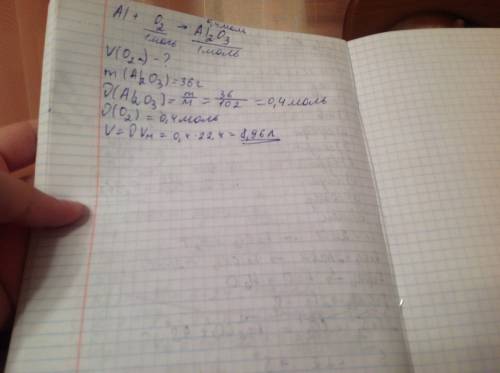 Al + O₂ → Al₂O₃ 0,4моль
1моль 1моль
V(O₂) - ?
m(Al₂O₃) = 36г
υ(Al₂O₃) = m/M = 36/102 = 0,4 моль
υ(O₂) = 0,4 моль
V = υ Vм = 0,4 · 22,4 = 8,96л